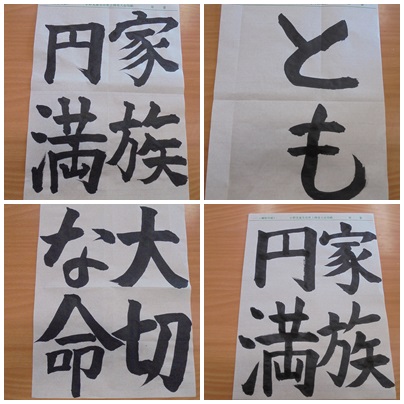 家族
円満
とも
大切
な命
家族
円満